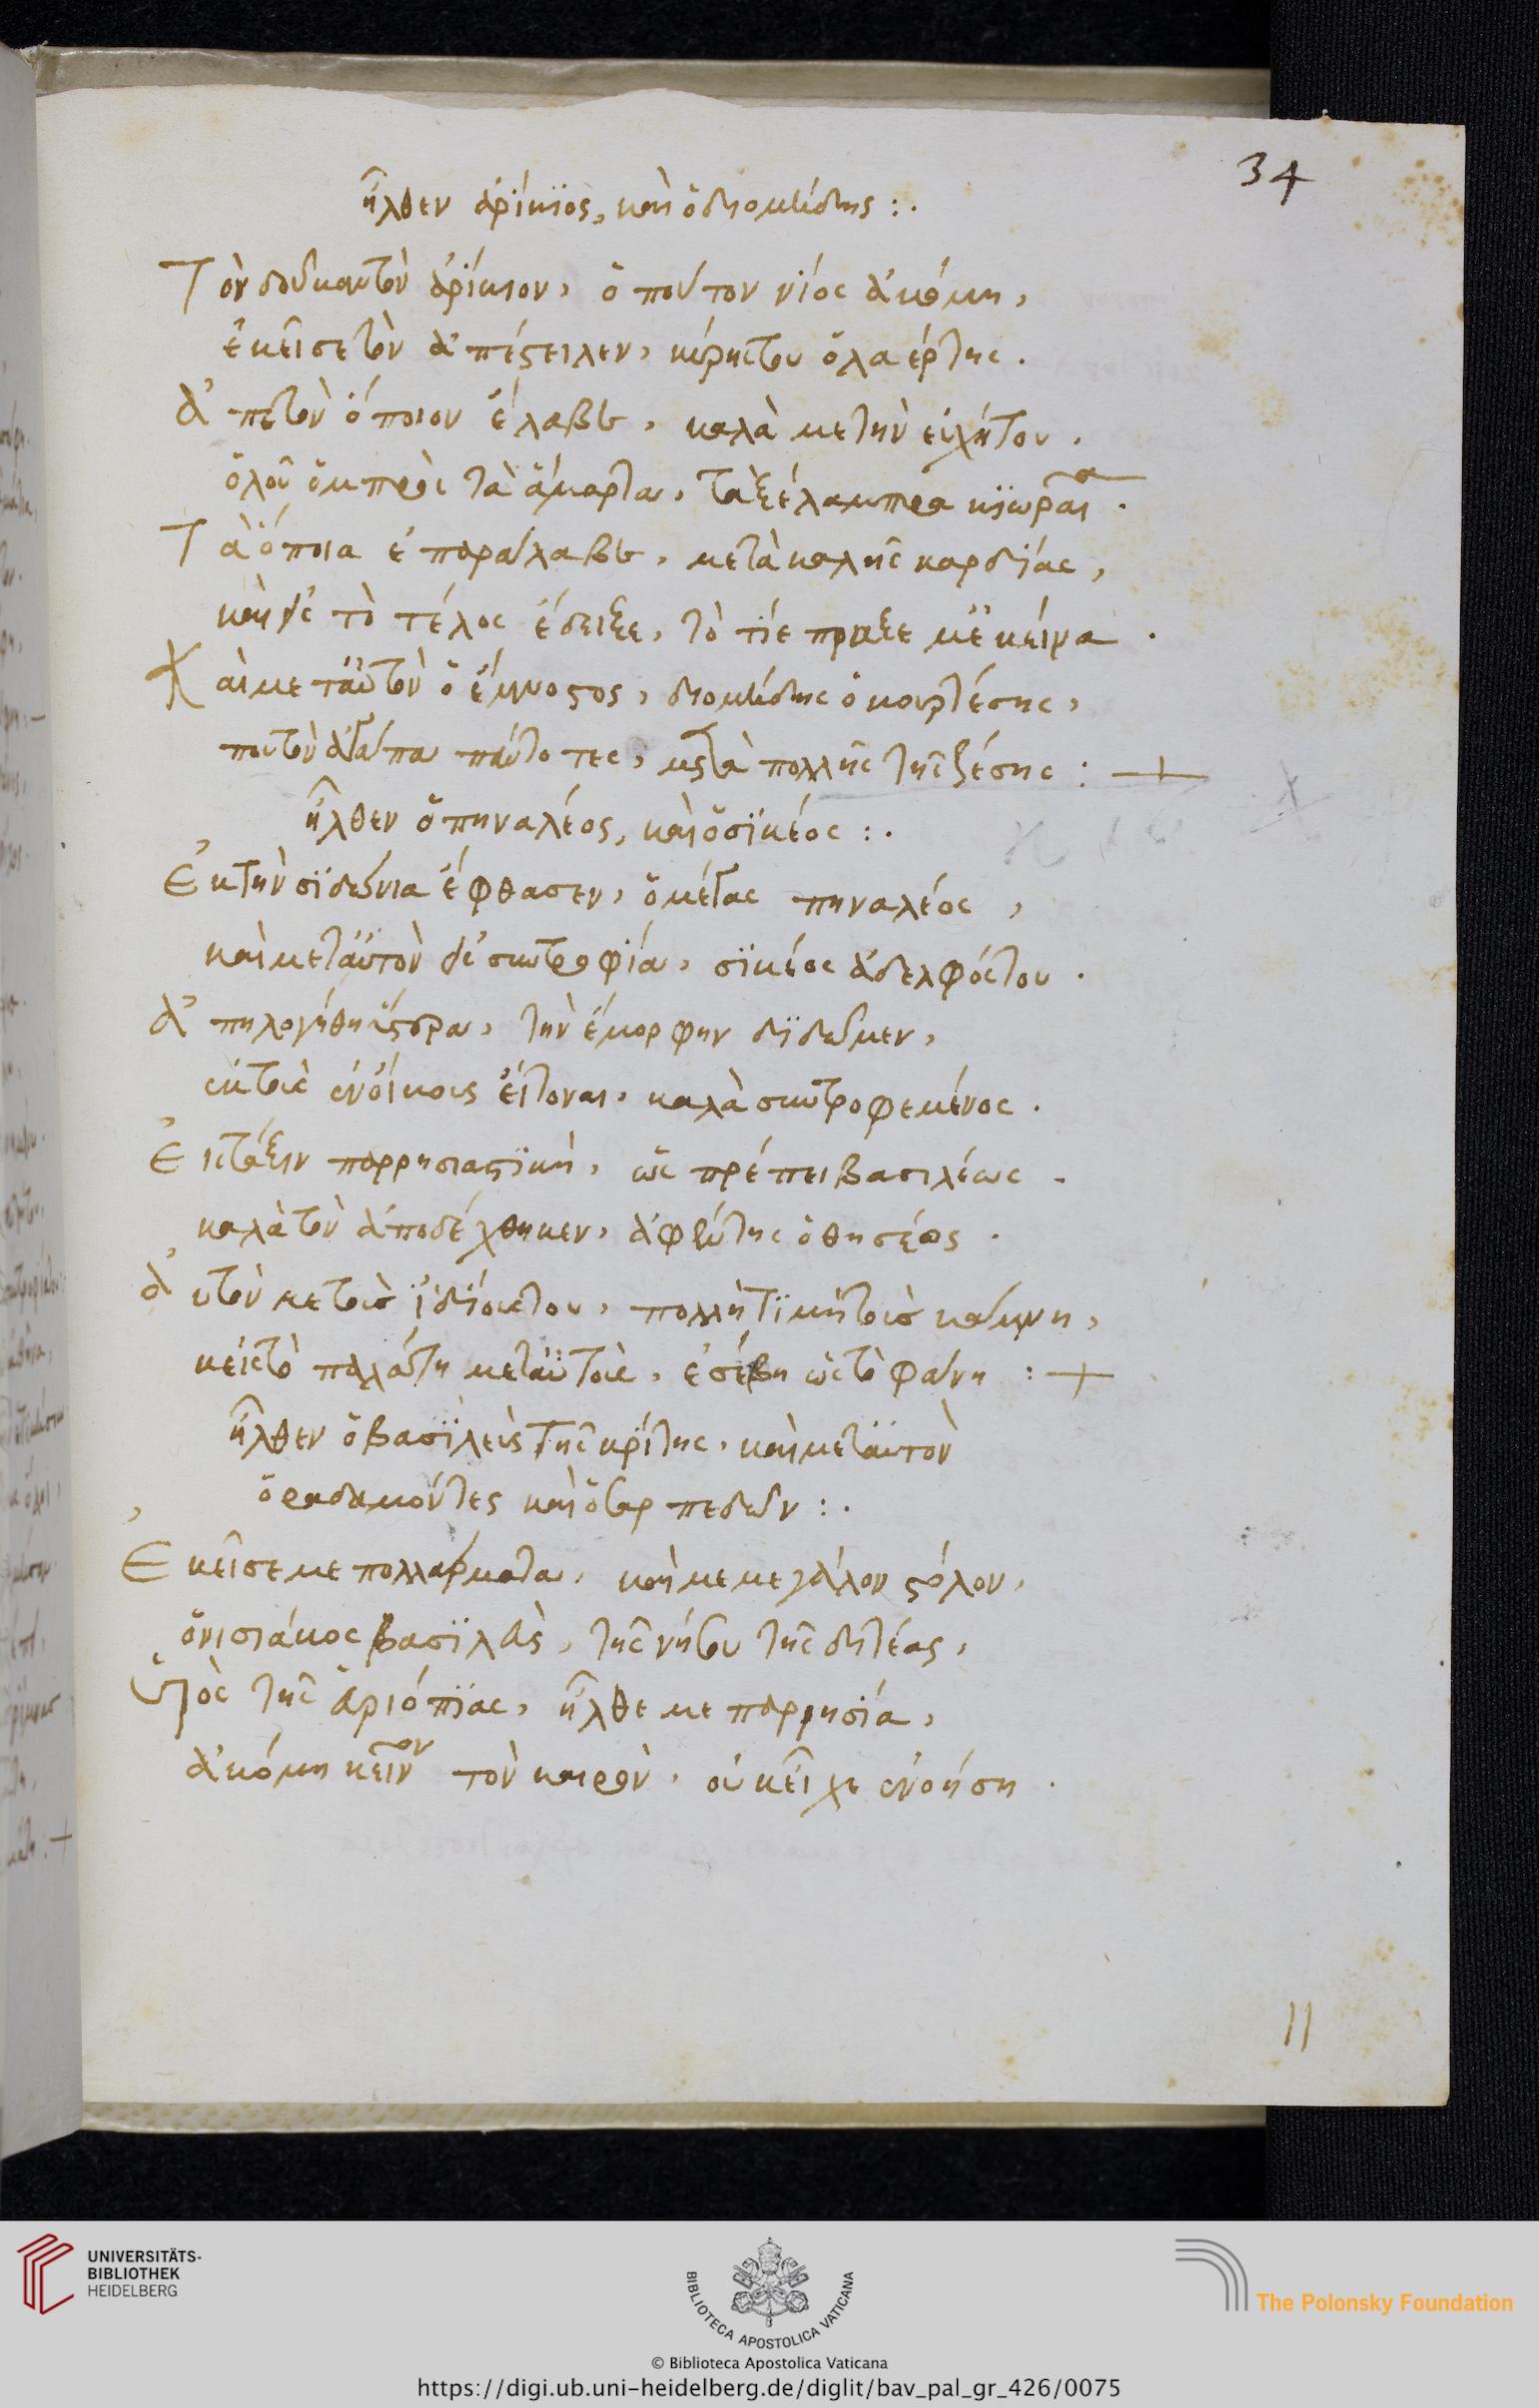 34
ἦλθεν ἀρίκιος, καὶ ὁ διομίδης :.
Τὸν δοῦκα αὐτὸν ἀρίκιον, ὁποῦ τον νίος ἀκόμη,
ἐκεῖσε τὸν ἀπέστειλεν, κύρης του ὅλα ἔρτης.
Ἀπε τὸν ὁποῖον ἔλαβε, καλὰ με τὴν εὐχήτου.
ὅλα τὰ ἄρματα, τὰ ἐξέλαμπρα
Τὰ ὁποῖα ἐπαράλαβε, μετὰ καλῆς καρδίας,
καὶ εἰ τὸ τέλος ἔδειξε, τὸ τί ἔπραξε μὲ κείνα.
Καὶ με ταῦτον ὁ ἔμνοστος, διομίδης ὁ κουρτέσης,
που τὸν ἀγάπα πάντοτες, μετὰ πολλῆς τῆς ζέσης : +
ἦλθεν ὁ πηναλέος, καὶ ὁ σϊκέος :.
Ἐκ τὴν σϊδώνια ἔφθασεν, ὁ μέγας πηναλέος,
καὶ μετ' αὐτὸν εἰ συντροφία, σϊκέος ἀδελφός του.
Ἀπηλογήθη τὴν ἔμορφην
καλὰ συντροφεμένος.
Εἰς τάξιν παρρησιαστϊκὴ, ὡς πρέπει βασιλέως.
καλὰ τὸν ἀποδέχθηκεν, ἀφέντης ὁ θησέος.
Ἀυτὸν με τοὺς ἰδϊούς του, πολλὴ τϊμὴ τοὺς κάμνη,
κεἰς τὸ παλάτη μετ' αὐτοὺς, ἐσέβη ὡς τὸ φάνη : +
ἦλθεν ὁ βασϊλεὺς τῆς κρίτης, καὶ μετ' αὐτὸν
ὁ ραδαμόντες καὶ ὁ σαρπεδών :.
Ἐκεῖσε με πολλ' ἄρματα, καὶ με μεγάλον στόλον,
ὁ νισιάκος βασϊλεὺς, τῆς νήσου τῆς διτέας,
Ὑιὸς τῆς ἀριόπϊας, ἦλθε με παρρησία,
ἀκόμη κεῖνον τὸν καιρὸν, οὐκ εἶχε ἐνοήση.
11
UNIVERSITÄTS-
BIBLIOTHEK
HEIDELBERG
BIBLIOTECA APOSTOLICA VATICANA
The Polonsky Foundation
© Biblioteca Apostolica Vaticana
https://digi.ub.uni-heidelberg.de/diglit/bav_pal_gr_426/0075